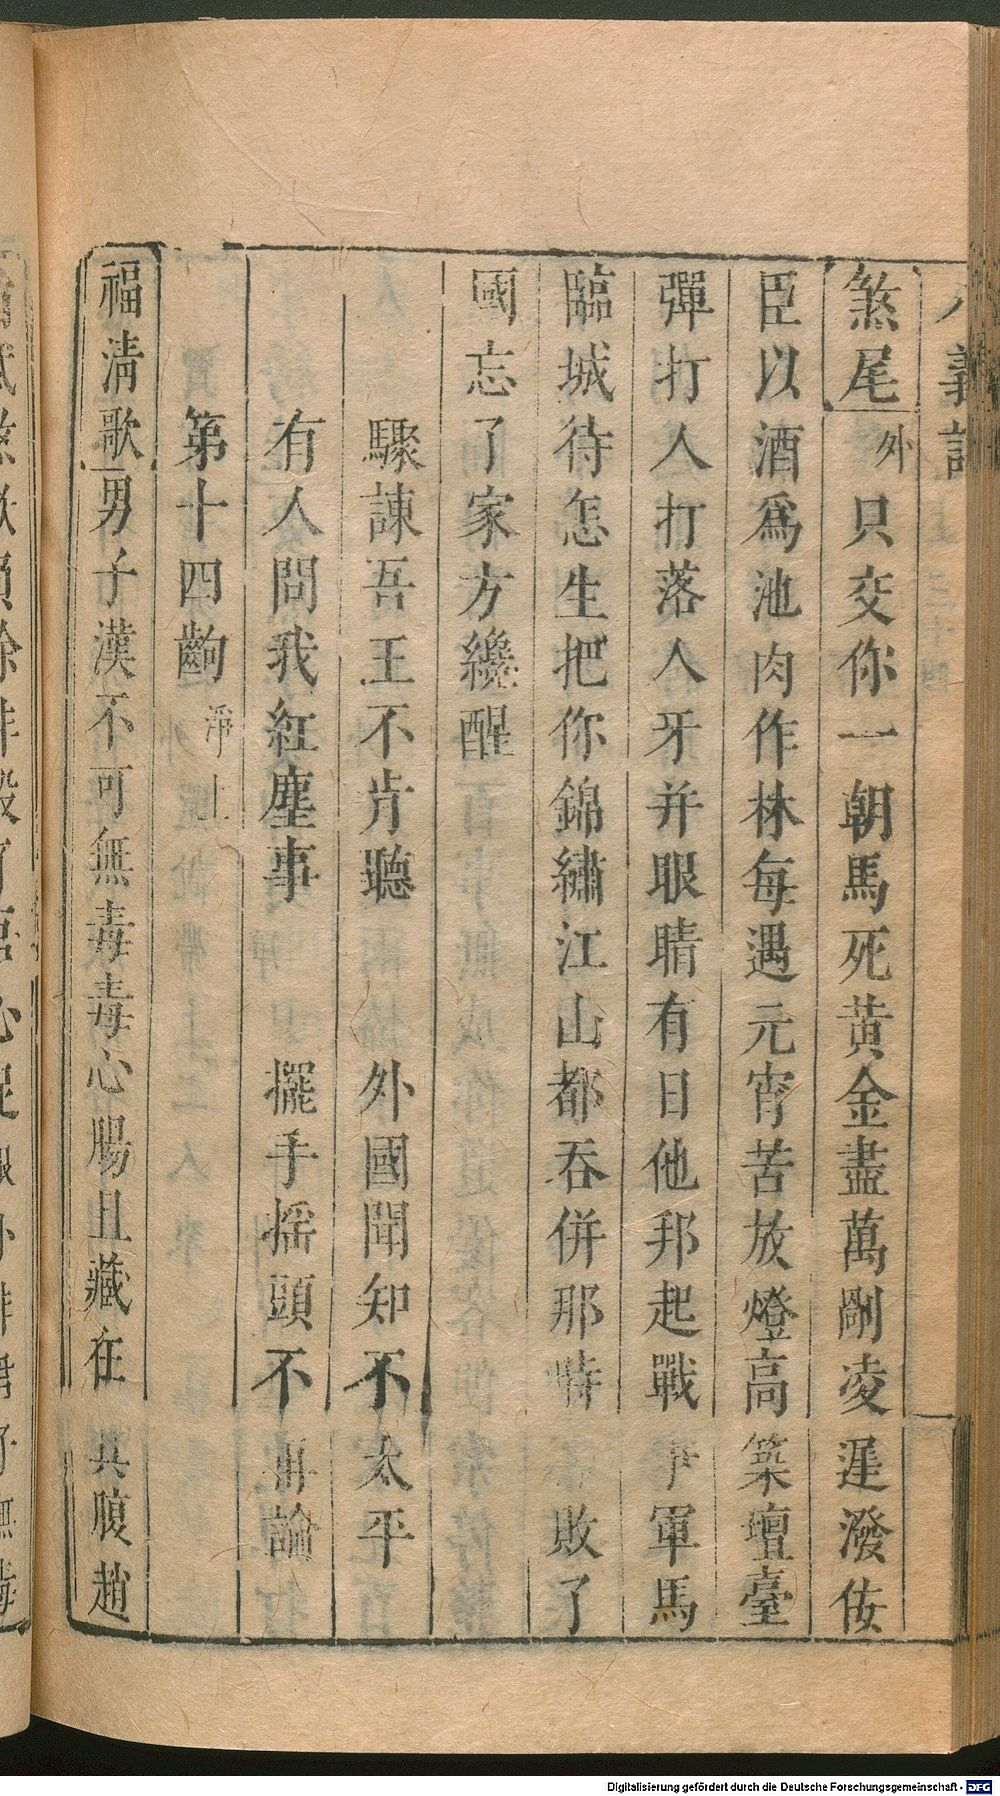 八義記
煞尾外只交你一朝馬死黄金盡萬剮凌遲潑佞
臣以酒爲池肉作林每遇元宵苦放燈高築壇臺
彈打人打落人牙并眼睛有日他邦起戰爭軍馬
臨城待怎生把你錦繡江山都吞併那時敗了
國忘了家方纔醒
驟諫吾王不肯聽　外國聞知不太平
有人問我紅塵事　擺手摇頭不再論
第十四齣淨上
福清歌男子漢不可無毒毒心腸且藏在其腹趙
Digitalisierung gefördert durch die Deutsche Forschungsgemeinschaft - DFG